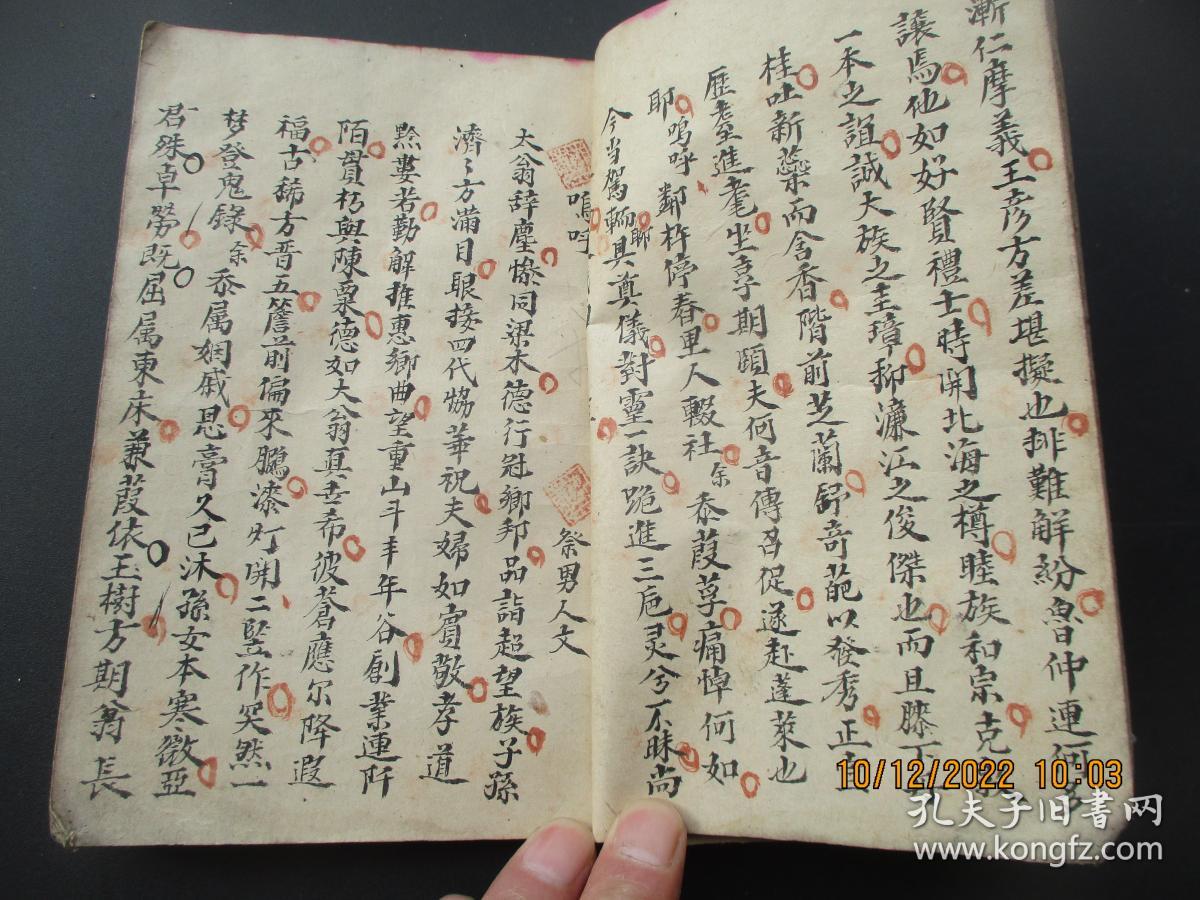 漸仁摩義王彥方差堪擬也排難解紛魯仲連何多
讓焉他如好賢禮士時開北海之樽睦族和宗克敦
一本之誼誠大族之圭璋抑濂江之俊傑也而且膝下
桂吐新蘂而含香階前芝蘭舒奇葩以發秀正宜
歷耋進耄坐享期頤夫何音傳召促遂赴蓬萊也
耶嗚呼鄰杵停舂里人輟社余忝葭莩痛悼何如
今当駕輀聊具奠儀對靈一訣跪進三卮灵兮不昧尚
嗚呼
祭男人文
太翁辞塵慘同梁木德行冠鄉邦品詣超望族子孫
濟々方滿目眼接四代觴華祝夫婦如賓敬孝道
黔婁若勤解推惠鄉曲望重山斗丰年谷創業連阡
陌貫朽與陳粟德如大翁真吉希彼蒼應尔降遐
福古稀方晋五簷前偏來鵬漆灯開二竪作突然一
梦登鬼錄余忝属姻戚恩膏久已沐孫女本寒微亞
君殊卓犖既屈属東床兼葭依玉樹方期翁長
10/12/2022 10:03
孔夫子旧书网
www.kongfz.com